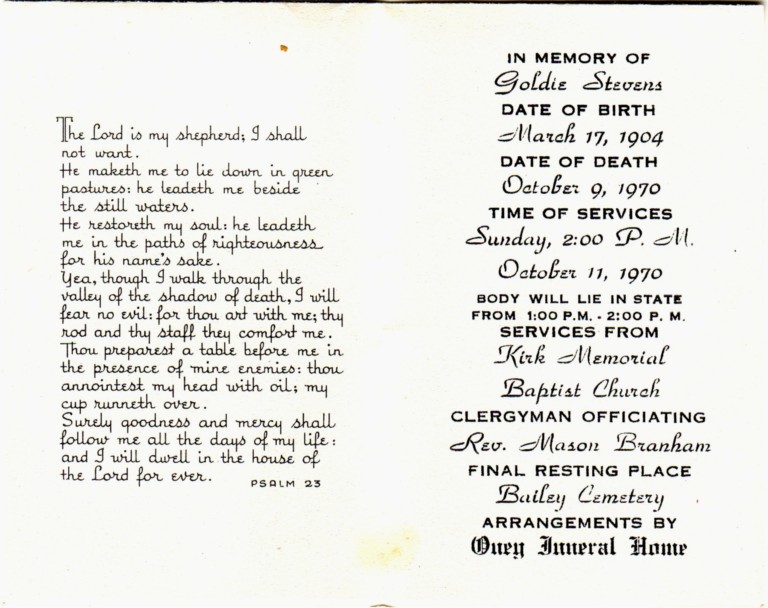 The Lord is my shepherd; I shall
not want.
He maketh me to lie down in green
pastures: he leadeth me beside
the still waters.
He restoreth my soul: he leadeth
me in the paths of righteousness
for his name's sake.
Yea, though I walk through the
valley of the shadow of death, I will
fear no evil: for thou art with me; thy
rod and thy staff they comfort me.
Thou preparest a table before me in
the presence of mine enemies: thou
annointest my head with oil; my
cup runneth over.
Surely goodness and mercy shall
follow me all the days of my life:
and I will dwell in the house of
the Lord for ever.
PSALM 23
IN MEMORY OF
Goldie Stevens
DATE OF BIRTH
March 17, 1904
DATE OF DEATH
October 9, 1970
TIME OF SERVICES
Sunday, 2:00 P. M.
October 11, 1970
BODY WILL LIE IN STATE
FROM 1:00 P.M. - 2:00 P. M.
SERVICES FROM
Kirk Memorial
Baptist Church
CLERGYMAN OFFICIATING
Rev. Mason Branham
FINAL RESTING PLACE
Bailey Cemetery
ARRANGEMENTS BY
Oney Funeral Home